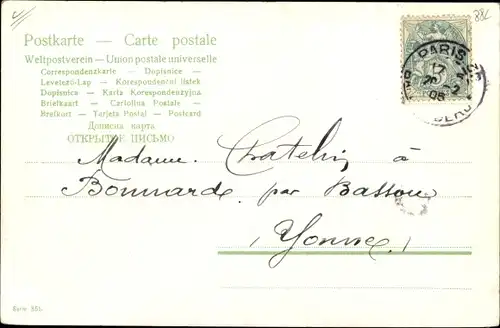 Postkarte — Carte postale
Weltpostverein — Union postale universelle
Correspondenzkarte — Dopisnice —
Levelező-Lap — Korespondenční lístek
Dopisnica — Karta Korespondencyjna
Briefkaart — Cartolina Postale —
Brefkort — Tarjeta Postal — Postcard
Дописна карта
ОТКРЫТОЕ ПИСЬМО
PARIS
Madame Chatelin à
Bonnarde par Basson
(Yonne)